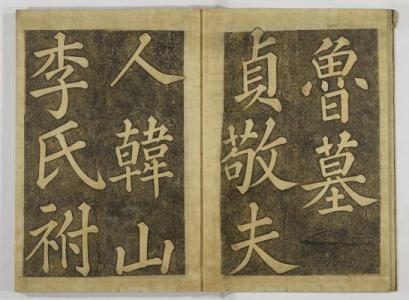 魯墓
貞敬夫
人韓山
李氏祔